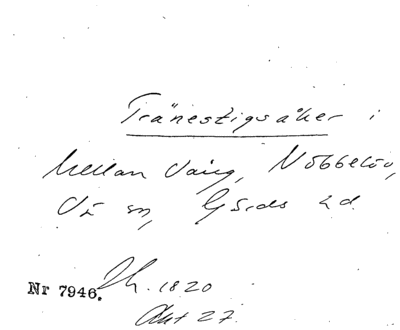 Tränestigsåker i
Mellan Vång, Nöbbelöv,
Vä sn, Gärds hd.
Nr 7946. Sk. 1820
Akt 27.